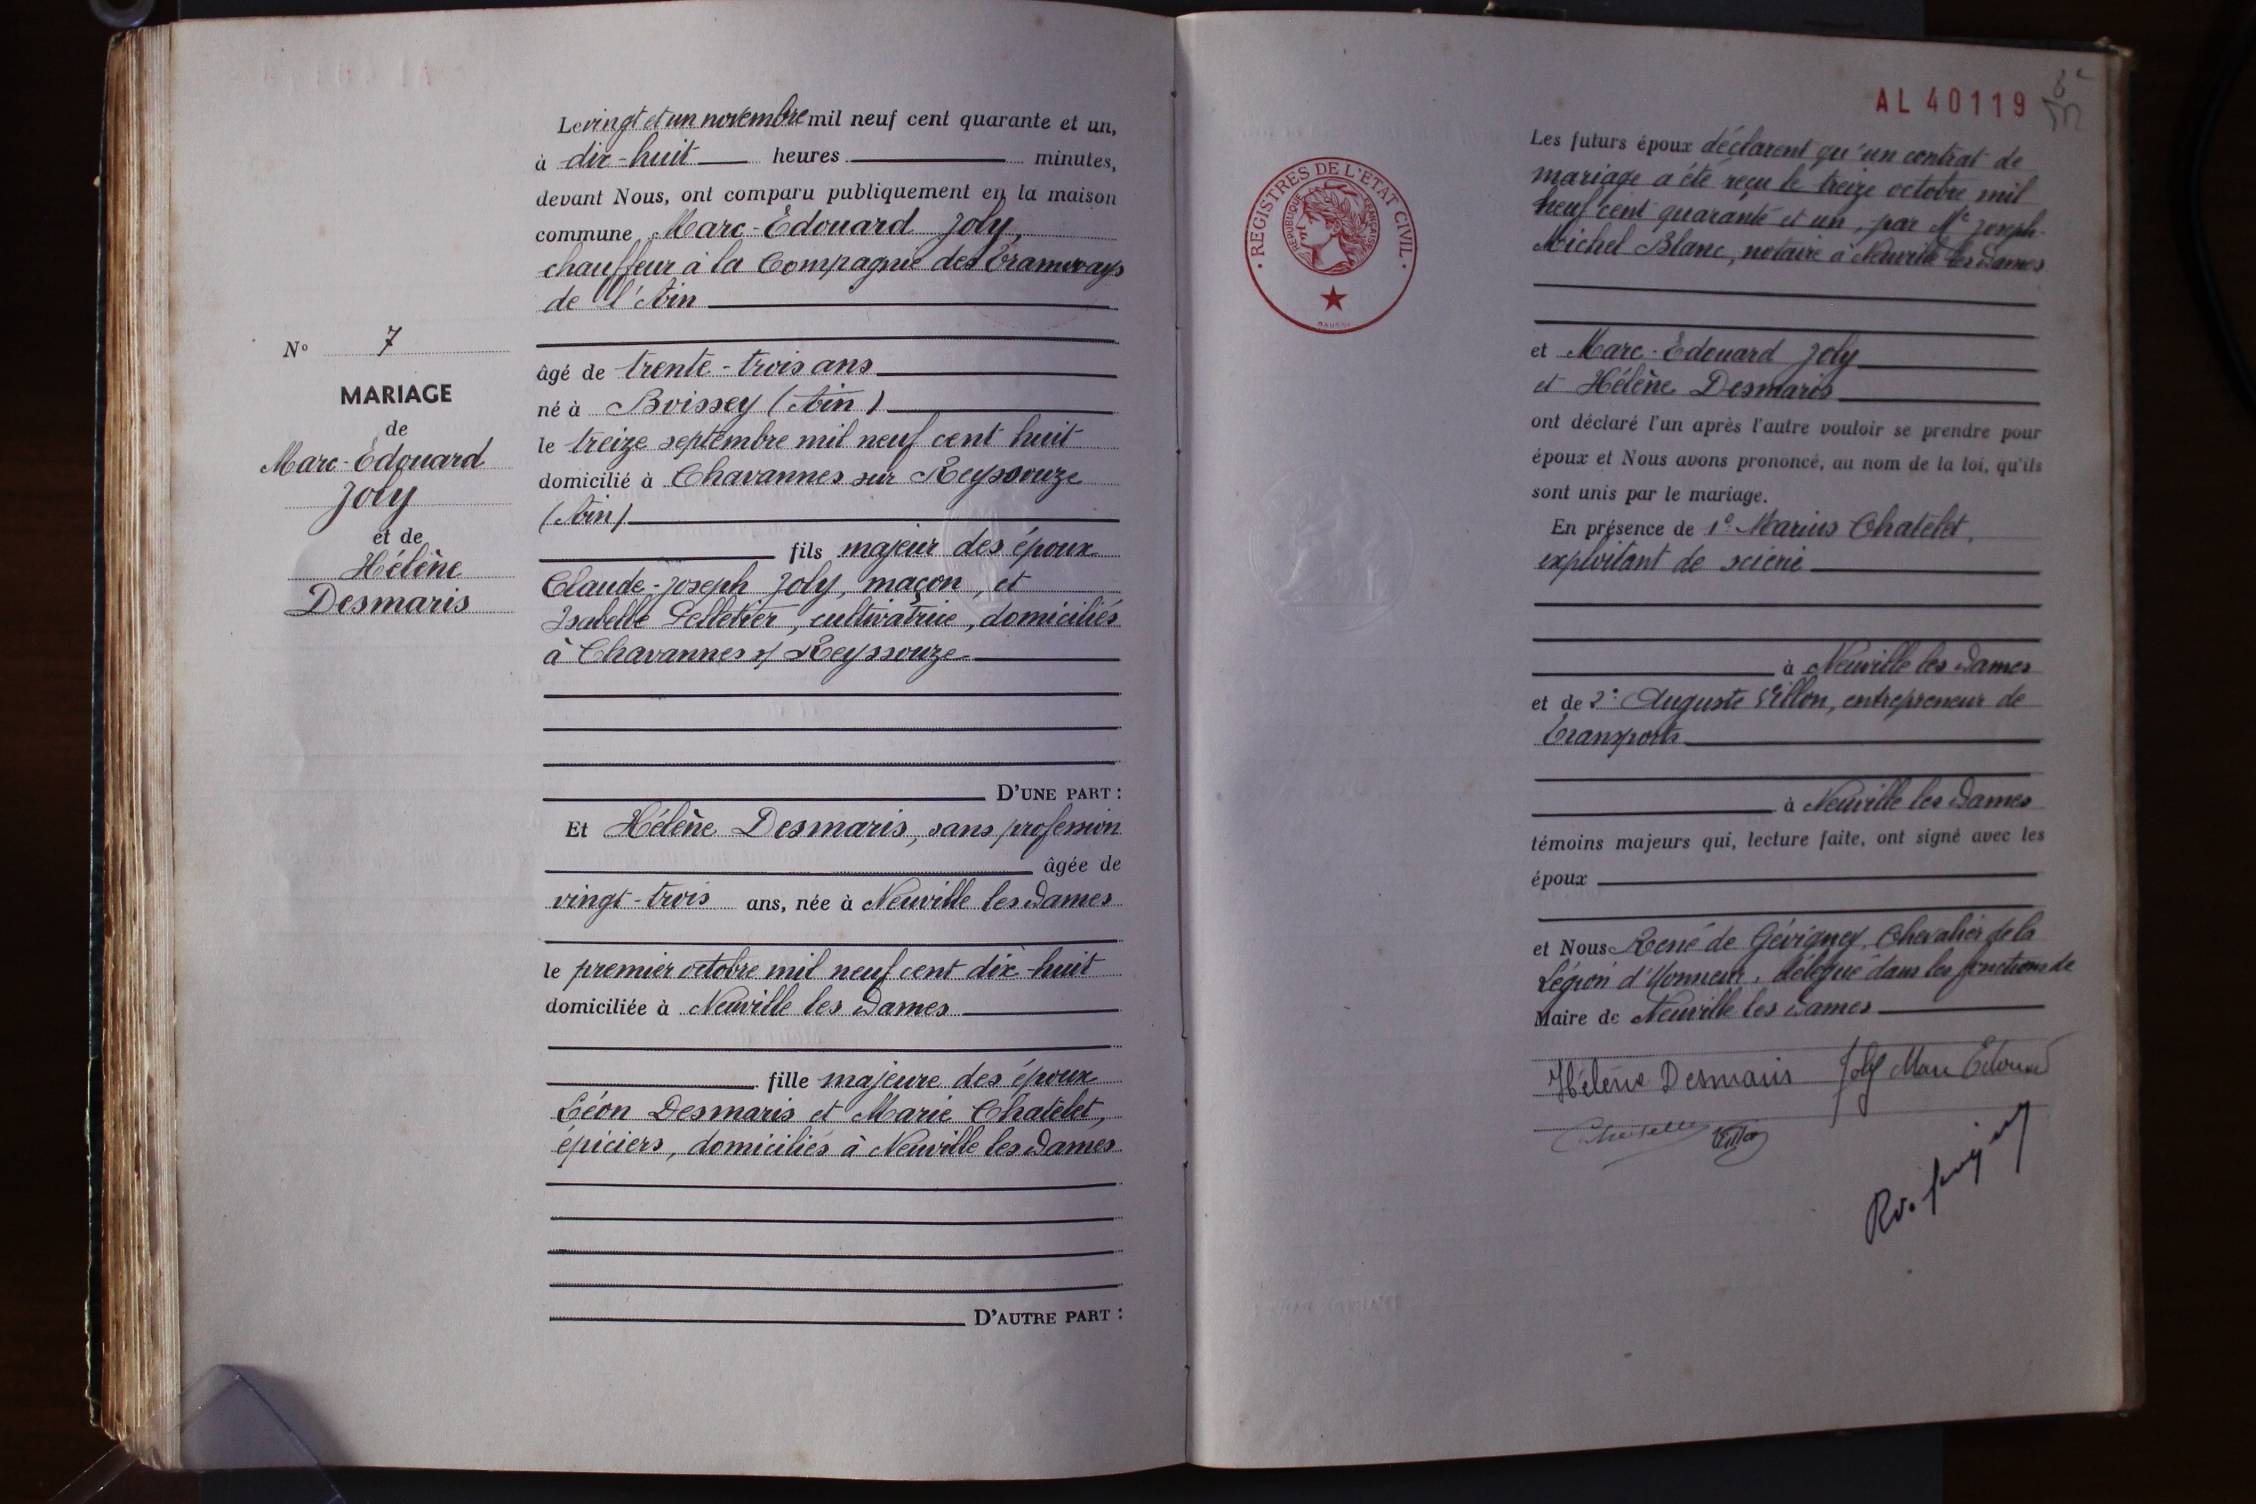 Le vingt et un novembre mil neuf cent quarante et un,
à dix-huit heures minutes,
devant Nous, ont comparu publiquement en la maison
commune Marc-Edouard Joly,
chauffeur à la Compagnie des Tramways
de l'Ain
âgé de trente-trois ans
né à Boissey (Ain)
le treize septembre mil neuf cent huit
domicilié à Chavannes sur Reyssouze
(Ain)
fils majeur des époux
Claude-Joseph Joly, maçon, et
Isabelle Pelletier, cultivatrice, domiciliés
à Chavannes s/ Reyssouze
D'UNE PART :
N° 7
MARIAGE
de
Marc-Edouard
Joly
et de
Hélène
Desmaris
Et Hélène Desmaris, sans profession
âgée de
vingt-trois ans, née à Neuville les Dames
le premier octobre mil neuf cent dix-huit
domiciliée à Neuville les Dames
fille majeure des époux
Léon Desmaris et Marie Chatelet,
épiciers, domiciliés à Neuville les Dames
D'AUTRE PART :
AL 40119
REGISTRES DE L'ETAT CIVIL
REPUBLIQUE FRANÇAISE
Les futurs époux déclarent qu'un contrat de
mariage a été reçu le treize octobre mil
neuf cent quarante et un, par Me Joseph-
Michel Blanc, notaire à Neuville les Dames
et Marc-Edouard Joly
et Hélène Desmaris
ont déclaré l'un après l'autre vouloir se prendre pour
époux et Nous avons prononcé, au nom de la loi, qu'ils
sont unis par le mariage.
En présence de 1° Marius Chatelet,
exploitant de scierie
à Neuville les Dames
et de 2° Auguste Villon, entrepreneur de
transports
à Neuville les Dames
témoins majeurs qui, lecture faite, ont signé avec les
époux
et Nous René de Gévigney, Chevalier de la
Légion d'Honneur, délégué dans les fonctions de
Maire de Neuville les Dames
Hélène Desmaris Joly Marc Edouard